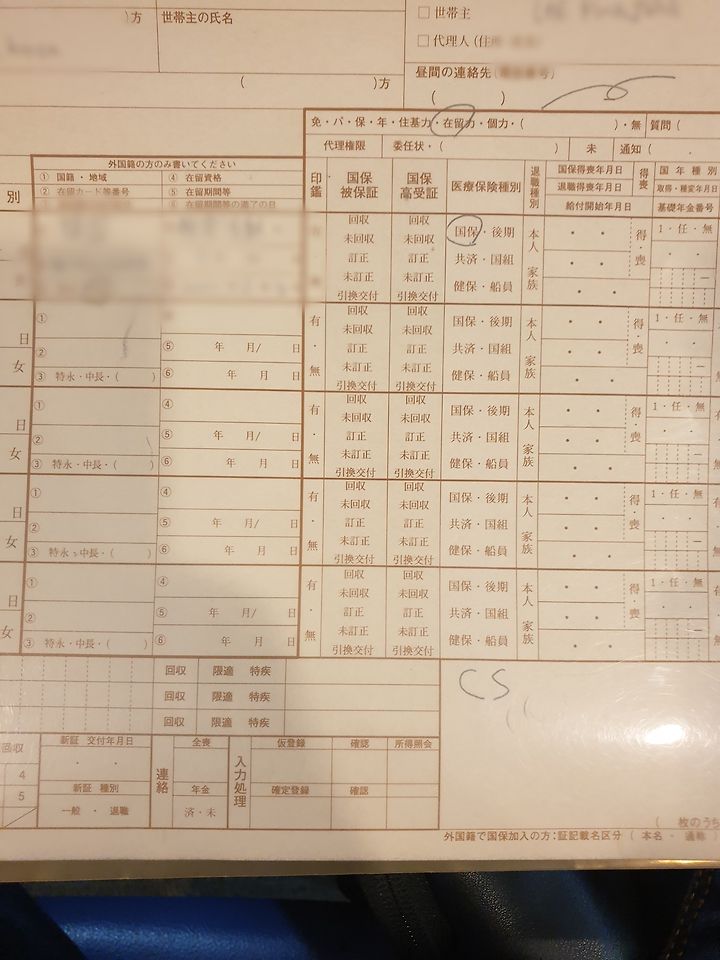 )方
世帯主の氏名
□ 世帯主
□ 代理人(住
昼間の連絡先
( )方
( )
免・パ・保・年・住基力・在留力・個力・( )・無 質問(
代理権限 委任状・( ) 未 通知(
外国籍の方のみ書いてください
① 国籍・地域 ④ 在留資格
② 在留カード等番号 ⑤ 在留期間等
⑥ 在留期間等の満了の日
別
印鑑
国保被保証
国保高受証
医療保険種別
退職種別
国保得喪年月日
退職得喪年月日
給付開始年月日
得喪
国年種別
取得・種変年月日
基礎年金番号
回収 回収 国保・後期 本人 ・ ・ 得・喪 1・任・無
未回収 未回収
訂正 訂正 共済・国組 ・ ・
未訂正 未訂正 家族
引換交付 引換交付 健保・船員 ・ ・
① 有 回収 回収 国保・後期 本人 ・ ・ 得・喪 1・任・無
日 未回収 未回収
② ⑤ 年 月/ 日 ・ 訂正 訂正 共済・国組 ・ ・
女 ③ 特永・中長・( ) ⑥ 年 月 日 無 未訂正 未訂正 健保・船員 家族 ・ ・
引換交付 引換交付
① ④ 有 回収 回収 国保・後期 本人 ・ ・ 得・喪 1・任・無
日 未回収 未回収
② ⑤ 年 月/ 日 ・ 訂正 訂正 共済・国組 ・ ・
女 ③ 特永・中長・( ) ⑥ 年 月 日 無 未訂正 未訂正 健保・船員 家族 ・ ・
引換交付 引換交付
① ④ 有 回収 回収 国保・後期 本人 ・ ・ 得・喪 1・任・無
日 未回収 未回収
② ⑤ 年 月/ 日 ・ 訂正 訂正 共済・国組 ・ ・
女 ③ 特永・中長・( ) ⑥ 年 月 日 無 未訂正 未訂正 健保・船員 家族 ・ ・
引換交付 引換交付
① ④ 有 回収 回収 国保・後期 本人 ・ ・ 得・喪 1・任・無
日 未回収 未回収
② ⑤ 年 月/ 日 ・ 訂正 訂正 共済・国組 ・ ・
女 ③ 特永・中長・( ) ⑥ 年 月 日 無 未訂正 未訂正 健保・船員 家族 ・ ・
引換交付 引換交付
回収 限適 特疾
CS
回収 限適 特疾
回収 限適 特疾
回収 新証 交付年月日 連絡 全喪 入力処理 仮登録 確認 所得照会
4 ・ ・
5 新証 種別 年金 確定登録 確認
一般 ・ 退職 済・未
( 枚のうち
外国籍で国保加入の方:証記載名区分(本名・通称)